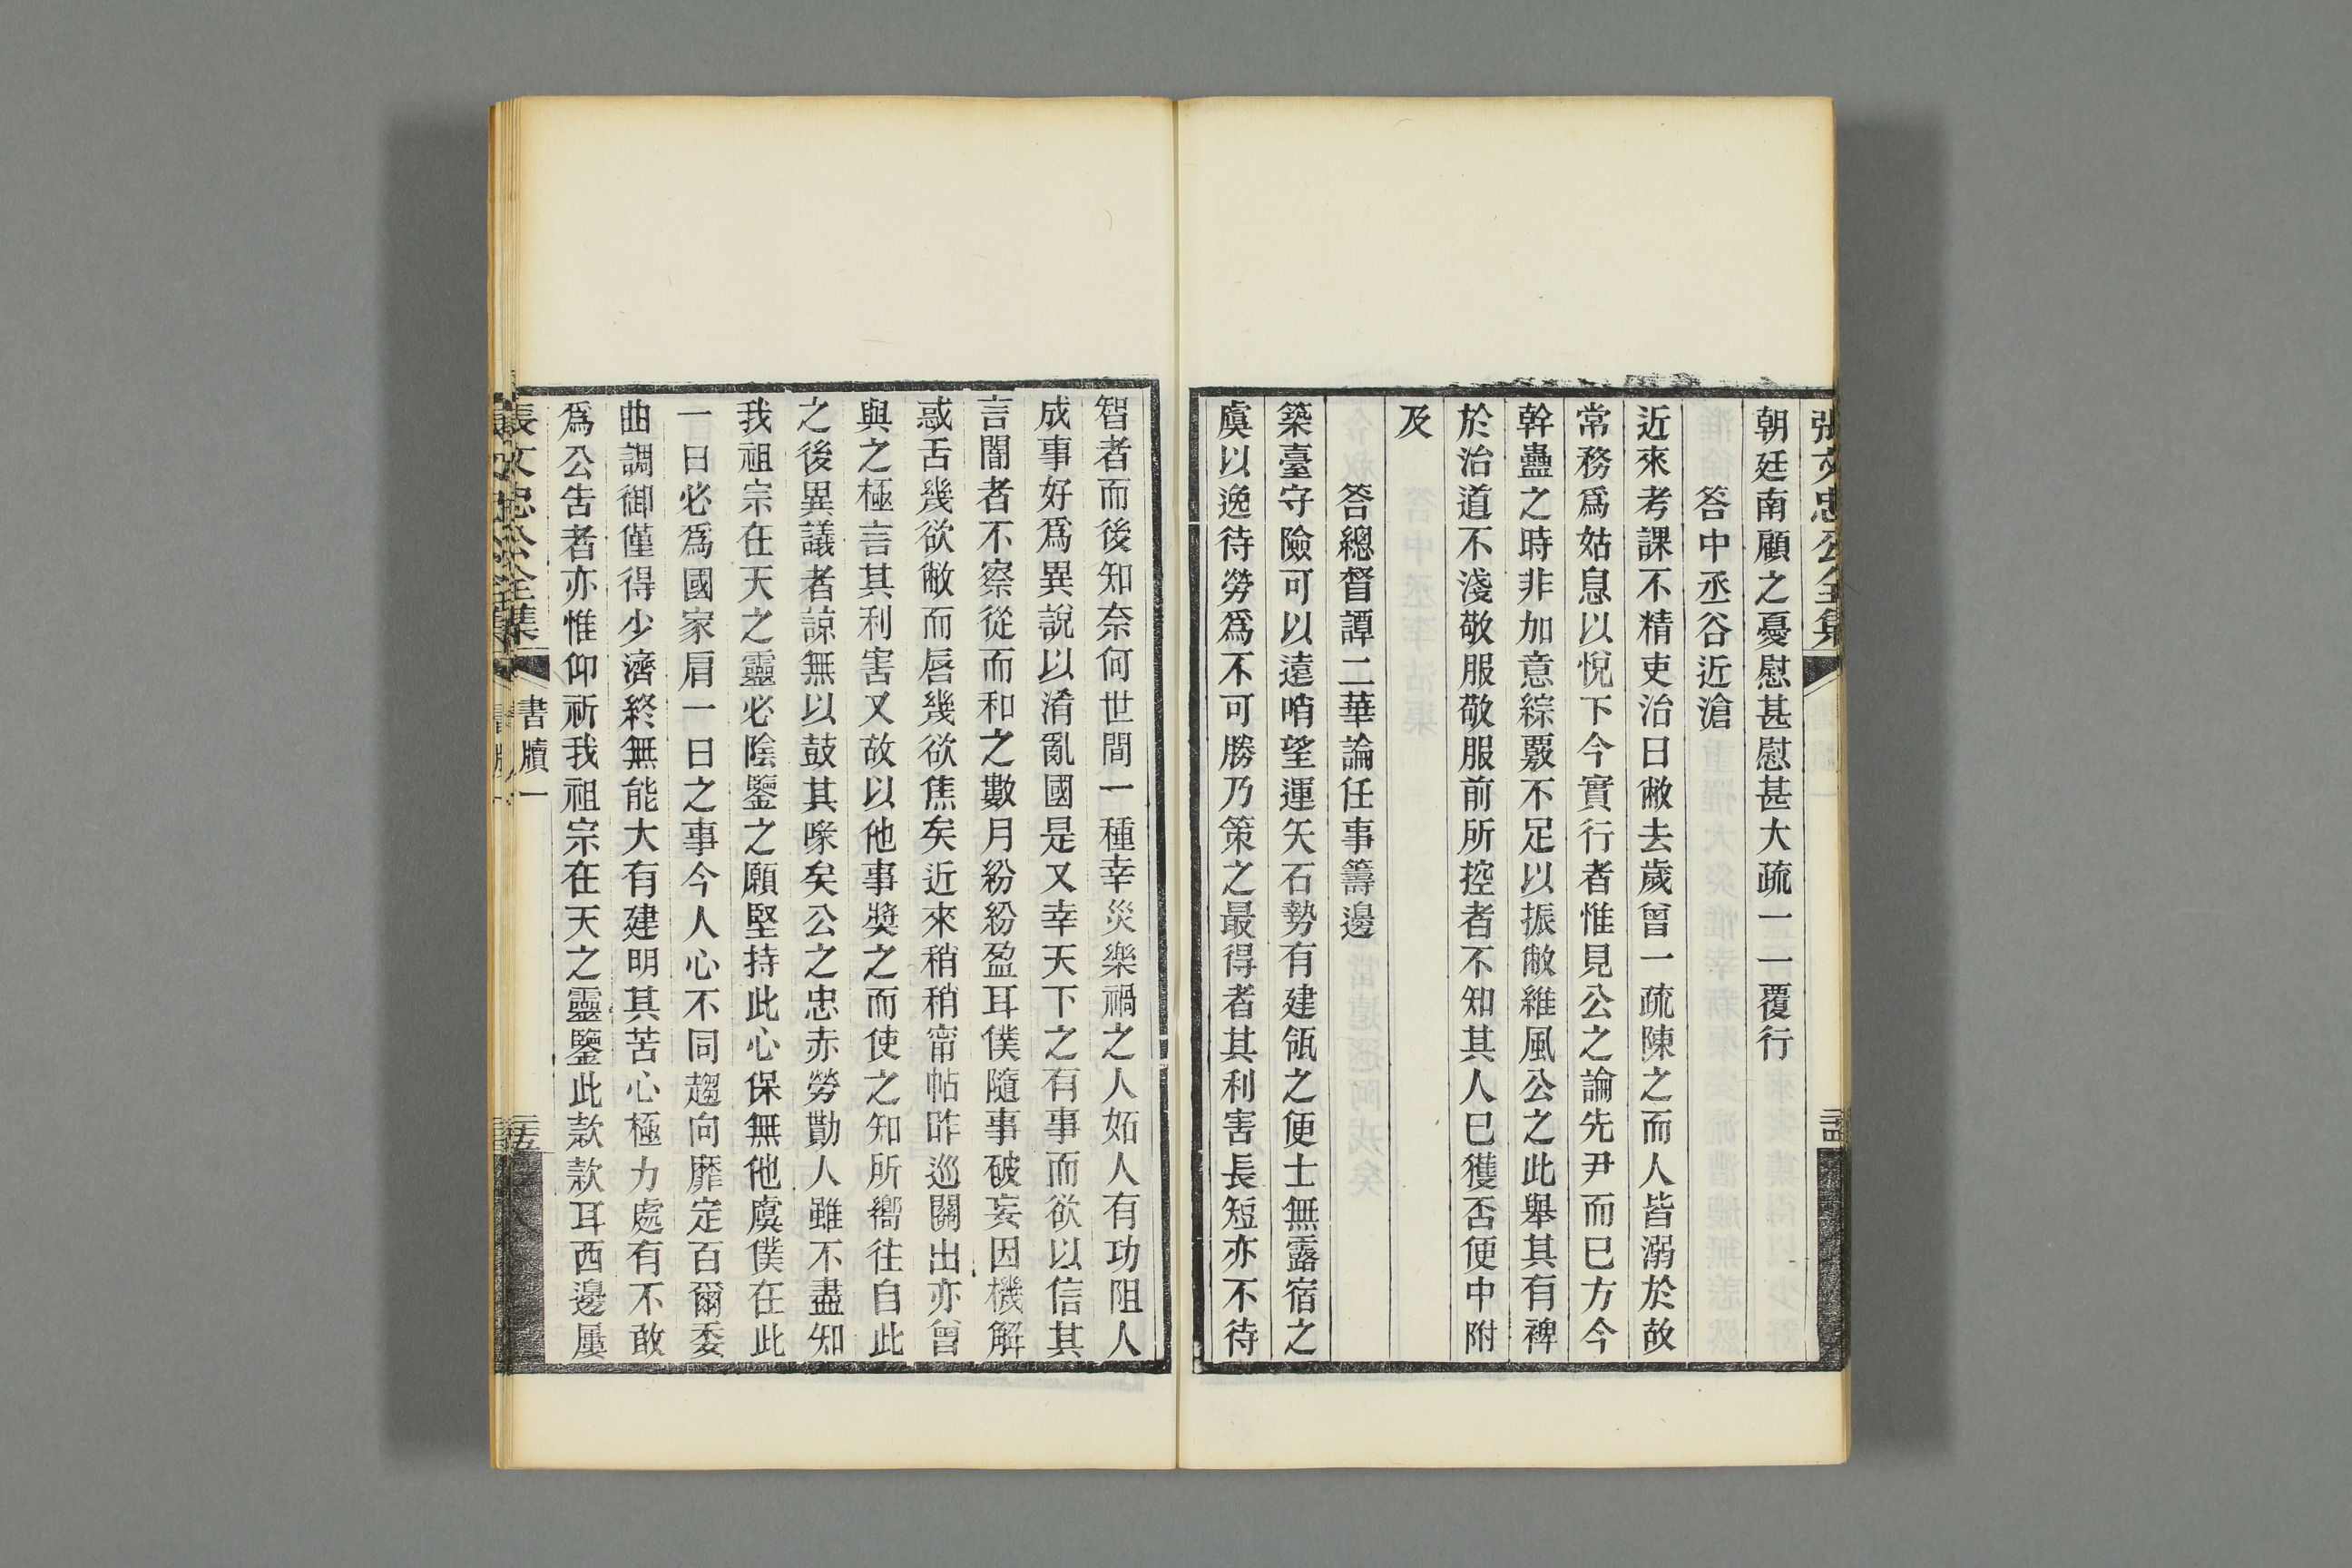 張文忠公全集
朝廷南顧之憂慰甚慰甚大疏一一覆行
答中丞谷近滄
近來考課不精吏治日敝去歲曾一疏陳之而人皆溺於故
常務爲姑息以悅下今實行者惟見公之論先尹而已方今
幹蠱之時非加意綜覈不足以振敝維風公之此舉其有裨
於治道不淺敬服敬服前所控者不知其人已獲否便中附
及
答總督譚二華論任事籌邊
築臺守險可以遠哨望運矢石勢有建瓴之便士無露宿之
虞以逸待勞爲不可勝乃策之最得者其利害長短亦不待
智者而後知奈何世間一種幸災樂禍之人妬人有功阻人
成事好爲異說以淆亂國是又幸天下之有事而欲以信其
言闇者不察從而和之數月紛紛盈耳僕隨事破妄因機解
惑舌幾欲敝而唇幾欲焦矣近來稍稍甯帖昨巡關出亦曾
與之極言其利害又故以他事獎之而使之知所嚮往自此
之後異議者諒無以鼓其喙矣公之忠赤勞勩人雖不盡知
我祖宗在天之靈必陰鑒之願堅持此心保無他虞僕在此
一日必爲國家肩一日之事今人心不同趨向靡定百爾委
曲調御僅得少濟終無能大有建明其苦心極力處有不敢
爲公告者亦惟仰祈我祖宗在天之靈鑒此款款耳西邊屢
張文忠公全集 書牘一